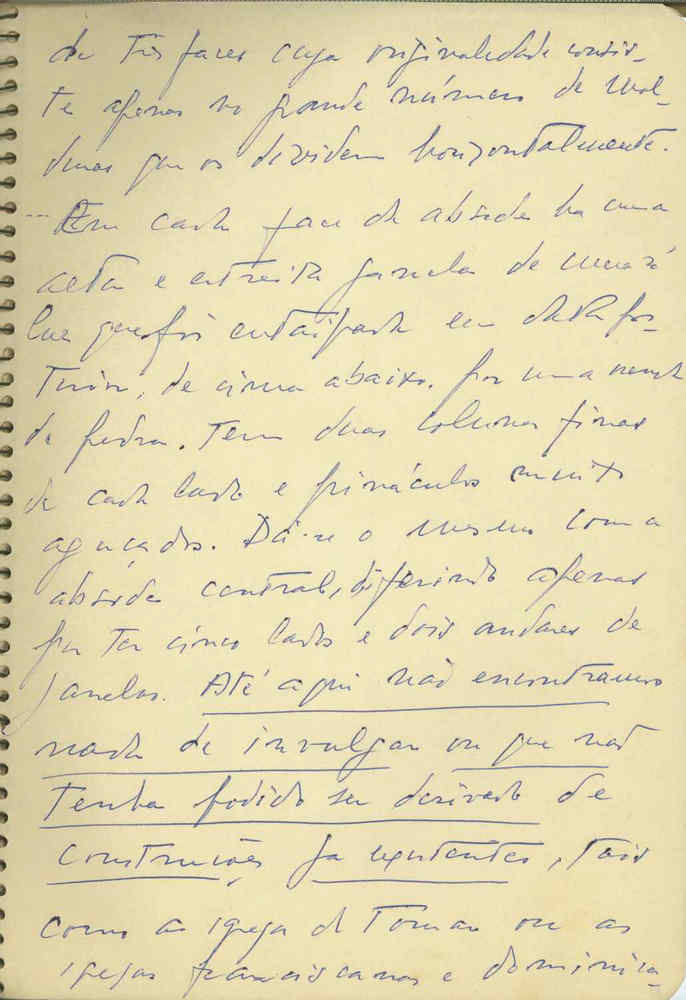 de três faces cuja originalidade consis-
te apenas no grande número de mol-
duras que os dividem horizontalmente.
... Em cada face da abside ha uma
alta e estreita janela de uma só
luz que foi entaipada em data pos-
terior, de cima abaixo, por uma
de pedra. Tem duas colunas finas
de cada lado e pináculos muito
aguçados. Dá-se o mesmo com a
abside central, diferindo apenas
por ter cinco lados e dois andares de
janelas. Até aqui não encontramos
nada de invulgar ou que não
tenha podido ser derivado de
construções ja existentes, tais
como as igreja de Tomar ou as
igrejas franciscanas e dominica-